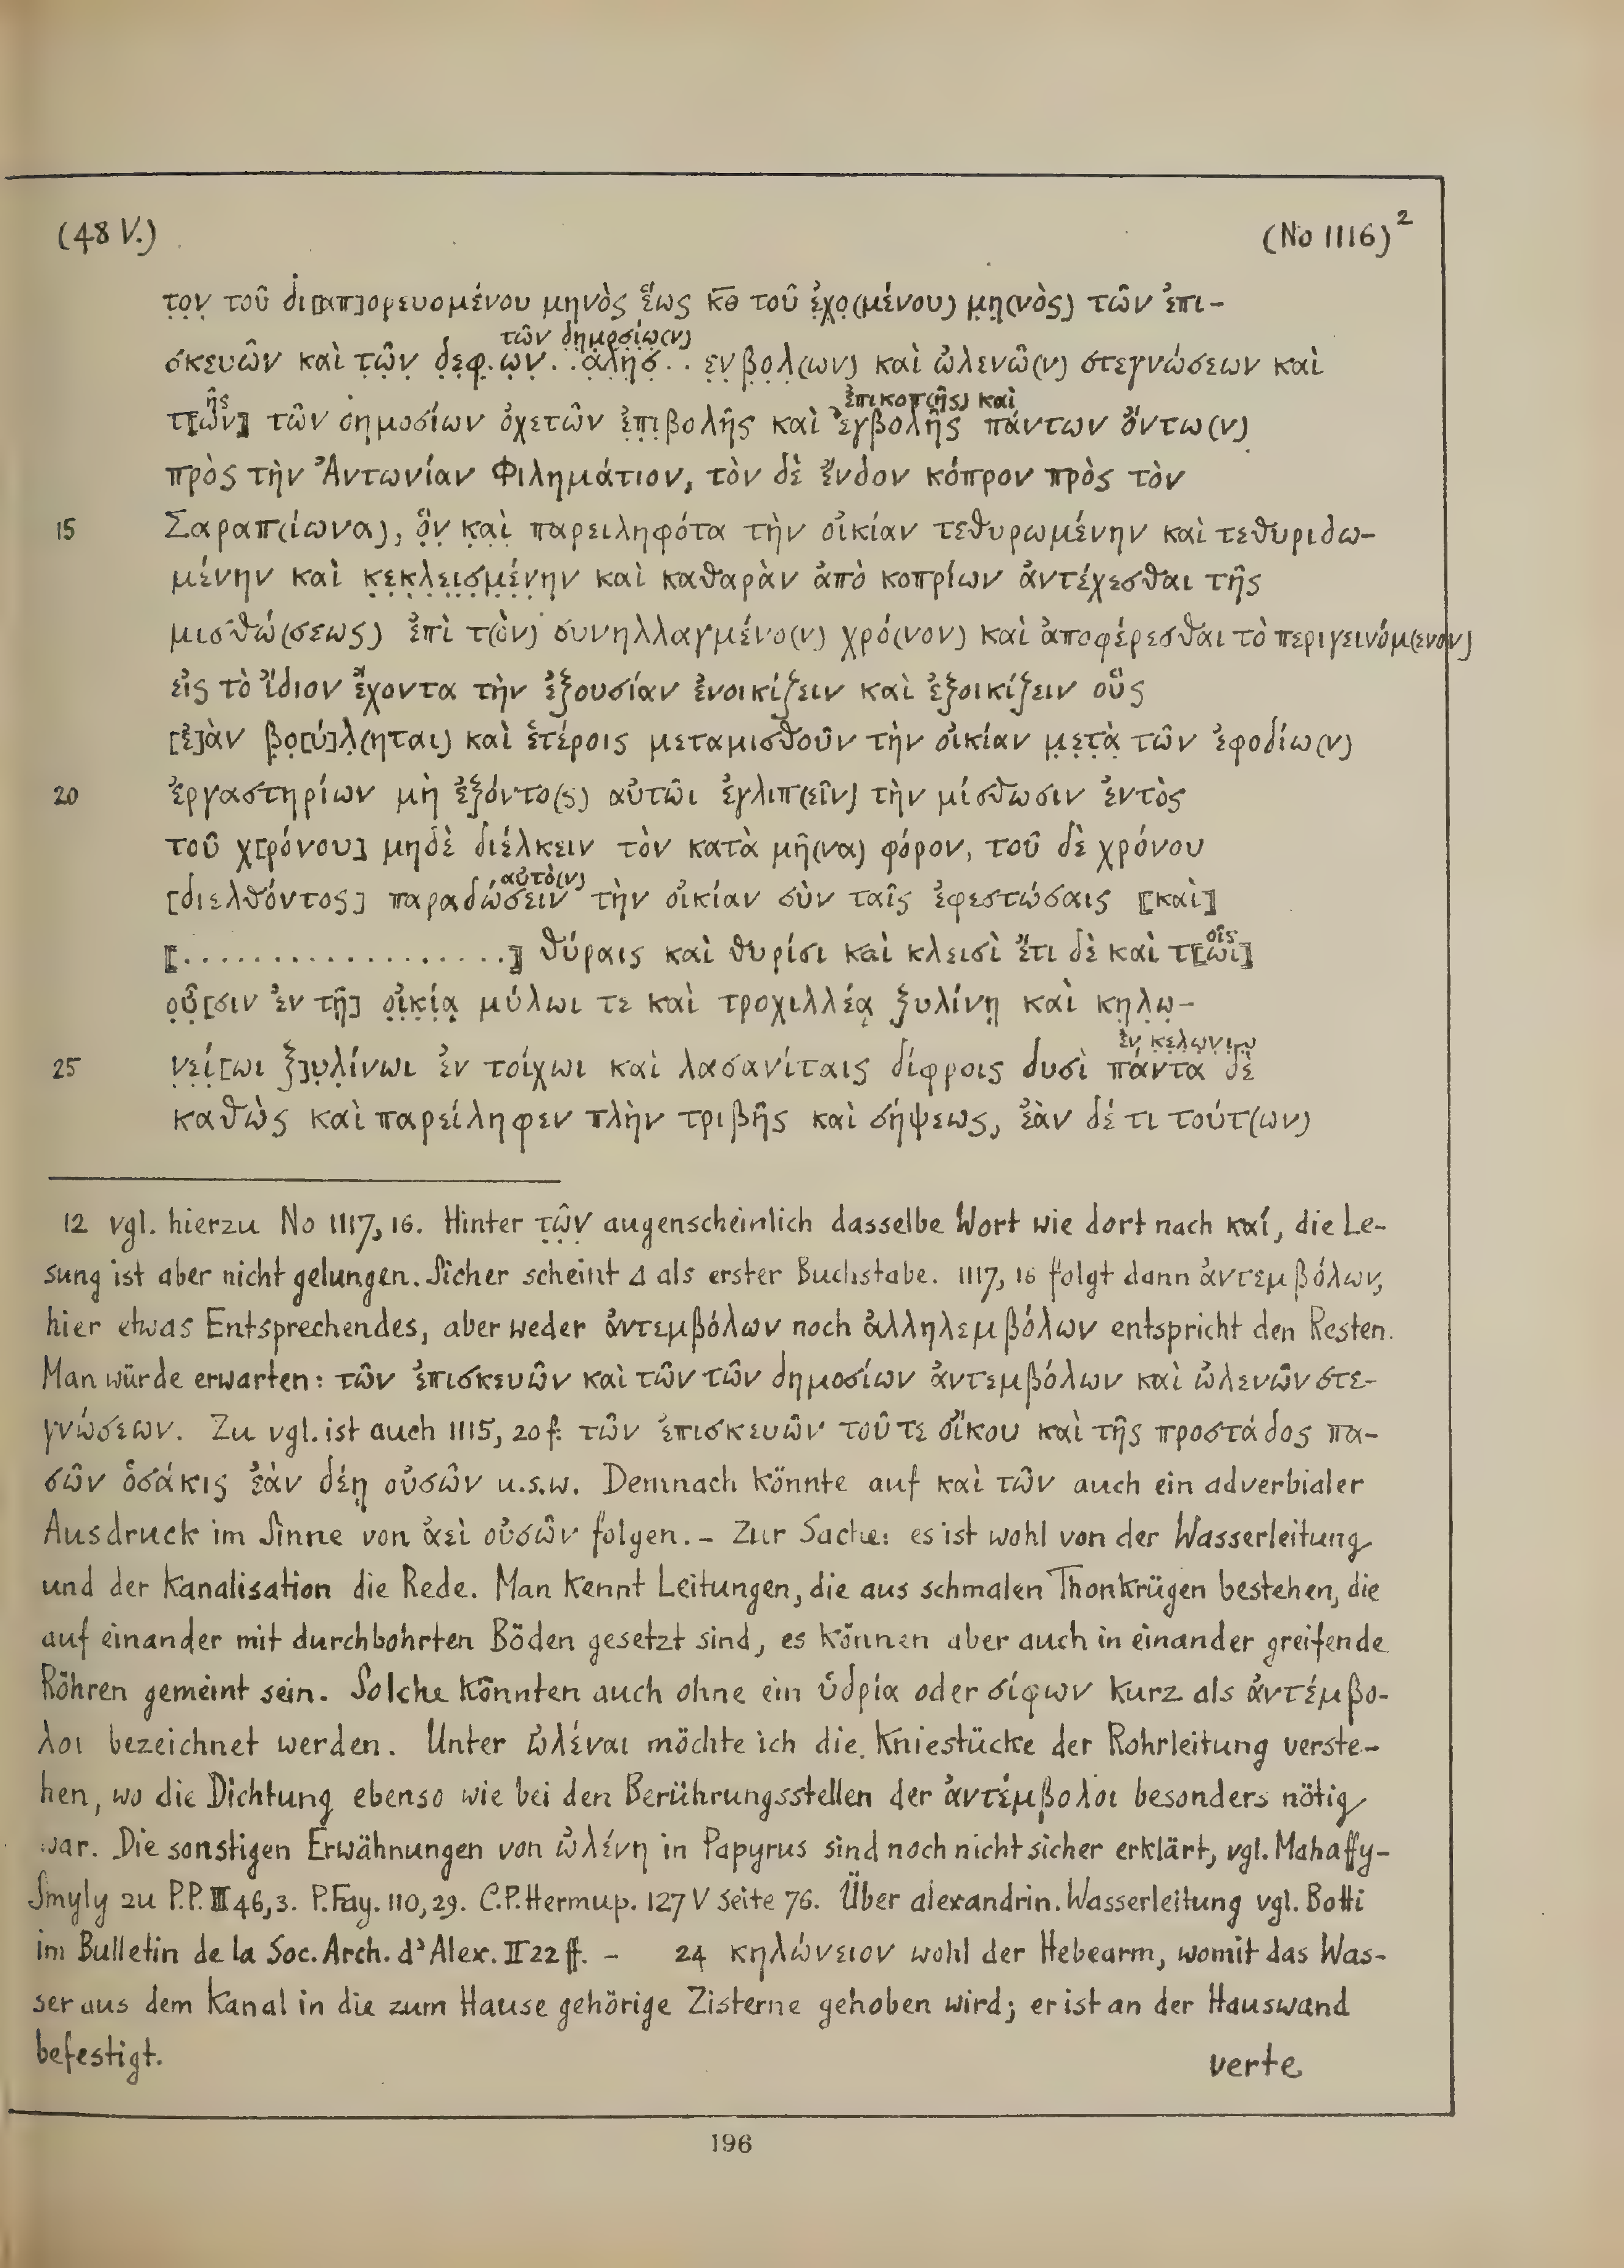 (48 V.) (No 1116)²
τ̣ο̣ν̣ τοῦ δι[απ]ορευομένου μηνὸς ἕως κ̅θ̅ τοῦ ἐ̣χο̣(μένου) μ̣η̣(νὸς) τῶν ἐπι-
τῶν δη̣μ̣ο̣σίω̣(ν)
σκευῶν καὶ τ̣ῶ̣ν̣ δ̣ε̣φ̣.ω̣ν̣..ἀ̣λ̣η̣σ̣.. ε̣ν̣β̣ο̣λ̣(ων) καὶ ὠλενῶ(ν) στεγνώσεων καὶ
ῆς ἐπικοπ(ῆς) καὶ
τ⟦ῶν⟧ τῶν δημοσίων ὀχετῶν ἐ̣π̣ι̣βολῆς καὶ ἐγβολῆς πάντων ὄντω(ν)
πρὸς τὴν Ἀντωνίαν Φιλημάτιον, τὸν δὲ ἔνδον κόπρον πρὸς τὸν
15 Σαραπ(ίωνα), ὃ̣ν̣ κ̣α̣ὶ̣ παρειληφότα τὴν οἰκίαν τεθυρωμένην καὶ τεθυριδω-
μένην καὶ κ̣ε̣κ̣λ̣ε̣ι̣σ̣μ̣έ̣ν̣ην καὶ καθαρὰν ἀπὸ κοπρίων ἀντέχεσθαι τῆς
μισθώ(σεως) ἐπὶ τ(ὸν) συνηλλαγμένο(ν) χρό(νον) καὶ ἀποφέρεσθαι τὸ περιγεινόμ(ενον)
εἰς τὸ ἴδιον ἔχοντα τὴν ἐξουσίαν ἐνοικίζειν καὶ ἐξοικίζειν οὓς
[ἐ]ὰν β̣ο̣[ύ]λ̣(ηται) καὶ ἑτέροις μεταμισθοῦν τὴν οἰκίαν μ̣ε̣τ̣ὰ̣ τῶν ἐφοδίω(ν)
20 ἐργαστηρίων μὴ ἐξόντο(ς) αὐτῶι ἐγλιπ(εῖν) τὴν μίσθωσιν ἐντὸς
τοῦ χ[ρόνου] μηδὲ διέλκειν τὸν κατὰ μῆ(να) φόρον, τοῦ δὲ χρόνου
αὐτὸ(ν)
[διελθόντος] παραδώσειν τὴν οἰκίαν σὺν ταῖς ἐφεστώσαις ⟦καὶ⟧
οῖς
⟦...................⟧ θύραις καὶ θυρίσι καὶ κλεισὶ ἔτι δὲ καὶ τ⟦ῶι⟧
ο̣ὖ̣[σιν ἐν τῇ] ο̣ἰ̣κ̣ί̣ᾳ̣ μύλωι τε καὶ τροχιλλέᾳ ξυλίνῃ καὶ κη̣λ̣ω̣-
ἐν̣ κ̣ε̣λ̣ω̣ν̣ι̣ῳ
25 ν̣ε̣ί̣[ωι ξ]υ̣λ̣ίνωι ἐν τοίχωι καὶ λασανίταις δίφροις δυσὶ πάντα δὲ
καθὼς καὶ παρείληφεν πλὴν τριβῆς καὶ σήψεως, ἐὰν δέ τι τούτ(ων)
12 vgl. hierzu No 1117, 16. Hinter τ̣ῶ̣ν̣ augenscheinlich dasselbe Wort wie dort nach καί, die Le-
sung ist aber nicht gelungen. Sicher scheint Δ als erster Buchstabe. 1117, 16 folgt dann ἀντεμβόλων,
hier etwas Entsprechendes, aber weder ἀντεμβόλων noch ἀλληλεμβόλων entspricht den Resten.
Man würde erwarten: τῶν ἐπισκευῶν καὶ τῶν τῶν δημοσίων ἀντεμβόλων καὶ ὠλενῶν στε-
γνώσεων. Zu vgl. ist auch 1115, 20f: τῶν ἐπισκευῶν τοῦ τε οἴκου καὶ τῆς προστάδος πα-
σῶν ὁσάκις ἐὰν δέῃ οὐσῶν u.s.w. Demnach könnte auf καὶ τῶν auch ein adverbialer
Ausdruck im Sinne von ἀεὶ οὐσῶν folgen. – Zur Sache: es ist wohl von der Wasserleitung
und der Kanalisation die Rede. Man kennt Leitungen, die aus schmalen Thonkrügen bestehen, die
auf einander mit durchbohrten Böden gesetzt sind, es können aber auch in einander greifende
Röhren gemeint sein. Solche könnten auch ohne ein ὑδρία oder σίφων kurz als ἀντέμβο-
λοι bezeichnet werden. Unter ὠλέναι möchte ich die Kniestücke der Rohrleitung verste-
hen, wo die Dichtung ebenso wie bei den Berührungsstellen der ἀντέμβολοι besonders nötig
war. Die sonstigen Erwähnungen von ὠλένη in Papyrus sind noch nicht sicher erklärt, vgl. Mahaffy-
Smyly zu P.P. III 46, 3. P.Fay. 110, 29. C.P.Hermup. 127 V Seite 76. Über alexandrin. Wasserleitung vgl. Botti
im Bulletin de la Soc. Arch. d'Alex. II 22 ff. – 24 κηλώνειον wohl der Hebearm, womit das Was-
ser aus dem Kanal in die zum Hause gehörige Zisterne gehoben wird; er ist an der Hauswand
befestigt. verte
196